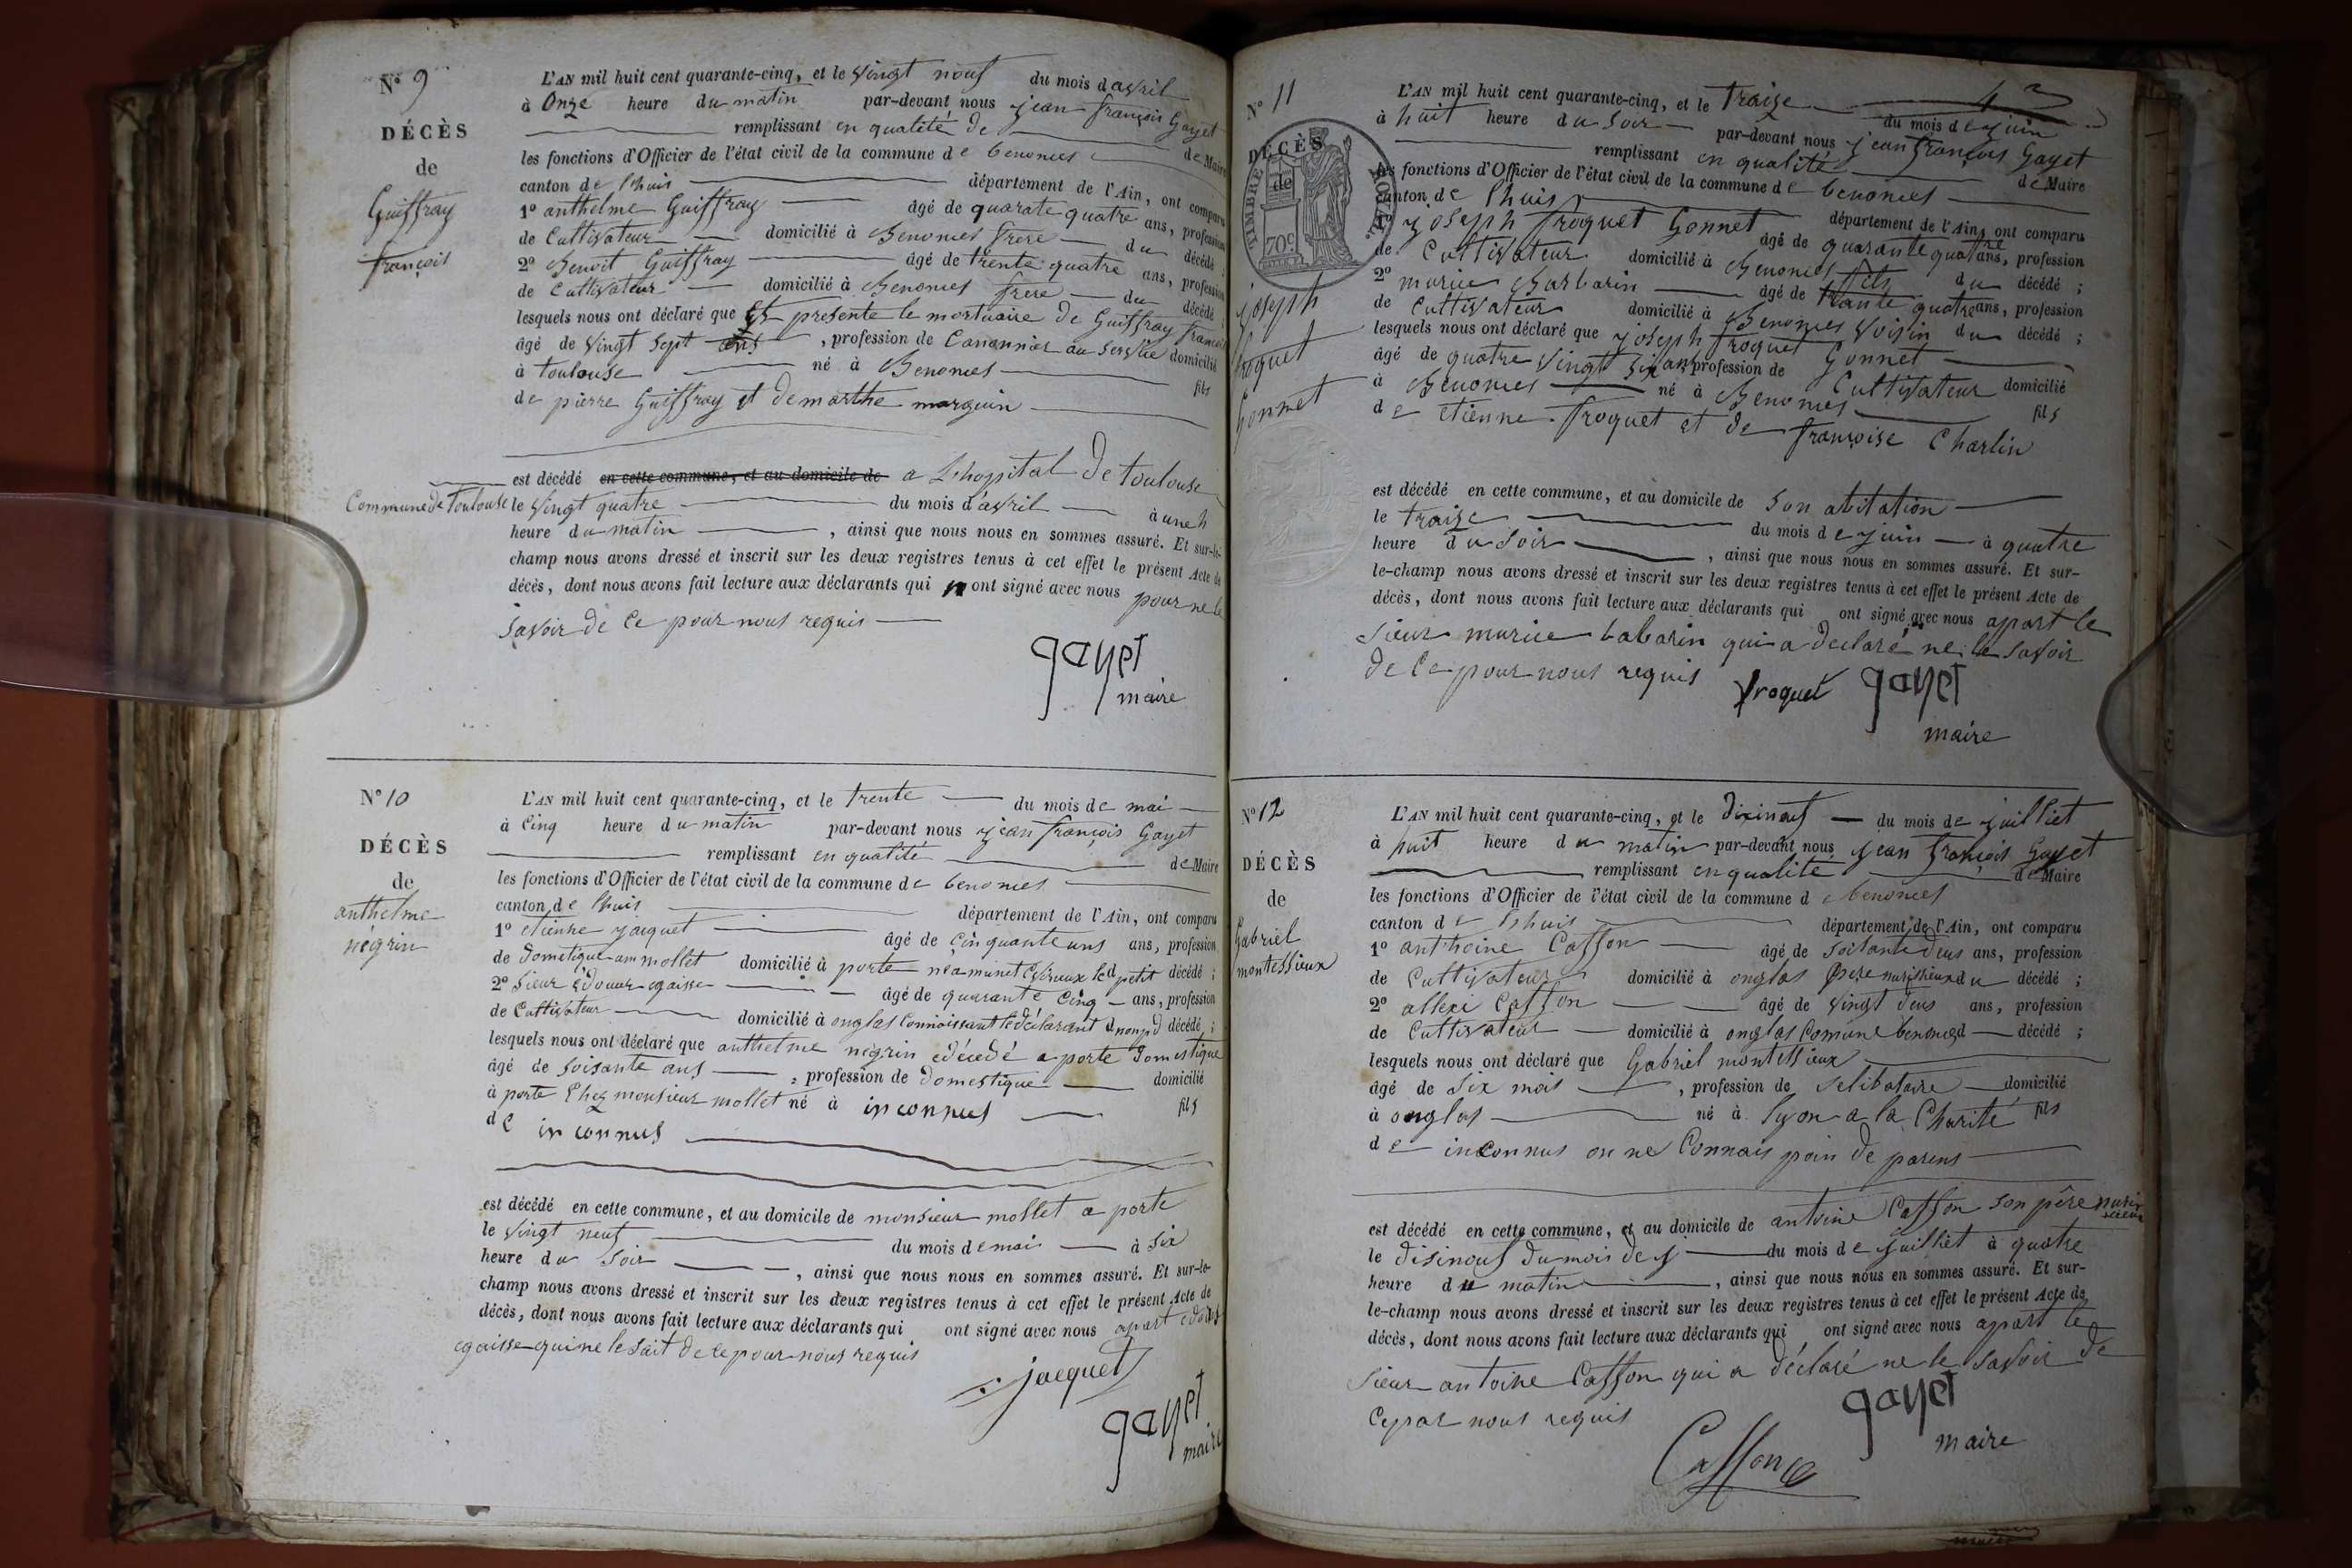 N° 9
DÉCÈS
de
Guiffray
françois
L'AN mil huit cent quarante-cinq, et le vingt nouf du mois d avril
à Onze heure du matin par-devant nous jean françois Gayet
remplissant en qualité de de Maire
les fonctions d'Officier de l'état civil de la commune de benonces
canton de lhuis département de l'Ain, ont comparu
1° anthelme Guiffray âgé de quarate quatre ans, profession
de Cultivateur domicilié à Benonces frere du décédé ;
2° Benoit Guiffray âgé de trente quatre ans, profession
de Cultivateur domicilié à Benonces frere du décédé ;
lesquels nous ont déclaré que presente le mortuaire de Guiffray françois
âgé de vingt sept ans, profession de Canonnier au service domicilié
à toulouse né à Benonces fils
de pierre Guiffray et de marthe marguin
est décédé en cette commune, et au domicile de a L'hopital de toulouse
Commune de Toulouse le vingt quatre du mois d'avril à une h
heure du matin, ainsi que nous nous en sommes assuré. Et sur-le-
champ nous avons dressé et inscrit sur les deux registres tenus à cet effet le présent Acte de
décès, dont nous avons fait lecture aux déclarants qui n ont signé avec nous pour ne le
savoir de ce pour nous requis
gayet
maire
N° 10
DÉCÈS
de
anthelme
négrin
L'AN mil huit cent quarante-cinq, et le trente du mois de mai
à Cinq heure du matin par-devant nous jean françois Gayet
remplissant en qualité de Maire
les fonctions d'Officier de l'état civil de la commune de benonces
canton de lhuis département de l'Ain, ont comparu
1° etienne jacquet âgé de cinquante uns ans, profession
de Dometique mollet domicilié à porte petit décédé ;
2° Sieur égaisse âgé de quarante cinq ans, profession
de Cultivateur domicilié à onglas Connoissant le déclarant décédé ;
lesquels nous ont déclaré que anthelme négrin edécedé a porte Domestique
âgé de soisante ans, profession de domestique domicilié
à porte Chez monsieur mollet né à inconnus fils
de inconnus
est décédé en cette commune, et au domicile de monsieur mollet a porte
le vingt neuf du mois de mai à six
heure du soir, ainsi que nous nous en sommes assuré. Et sur-le-
champ nous avons dressé et inscrit sur les deux registres tenus à cet effet le présent Acte de
décès, dont nous avons fait lecture aux déclarants qui ont signé avec nous apart
egaisse qui ne le sait de ce pour nous requis
jacquet
gayet
maire
N° 11
43
DÉCÈS
de
TIMBRE ROYAL
70c
joseph
froquet
Gonnet
L'AN mil huit cent quarante-cinq, et le traize du mois de juin
à huit heure du soir par-devant nous jean françois Gayet
remplissant en qualité de Maire
les fonctions d'Officier de l'état civil de la commune de benonces
canton de lhuis département de l'Ain, ont comparu
1° joseph froquet Gonnet âgé de quarante quatre ans, profession
de Cultivateur domicilié à Benonces fils du décédé ;
2° murice Barbarin âgé de trante quatre ans, profession
de Cultivateur domicilié à Benonces voisin du décédé ;
lesquels nous ont déclaré que joseph froquet Gonnet
âgé de quatre vingt six ans profession de Cultivateur domicilié
à Benonces né à Benonces fils
de etienne froquet et de françoise Charlin
est décédé en cette commune, et au domicile de son abitation
le traize du mois de juin à quatre
heure du soir, ainsi que nous nous en sommes assuré. Et sur-
le-champ nous avons dressé et inscrit sur les deux registres tenus à cet effet le présent Acte de
décès, dont nous avons fait lecture aux déclarants qui ont signé avec nous apart le
Sieur murice babarin qui a declaré ne le savoir
de ce pour nous requis
froquet gayet
maire
N° 12
DÉCÈS
de
Gabriel
montessieux
L'AN mil huit cent quarante-cinq, et le Dixineuf du mois de juilliet
à huit heure du matin par-devant nous jean françois Gayet
remplissant en qualité de Maire
les fonctions d'Officier de l'état civil de la commune de benonces
canton de lhuis département de l'Ain, ont comparu
1° anthoine Casson âgé de soisante deus ans, profession
de Cultivateur domicilié à onglas Pere du décédé ;
2° allexi Casson âgé de vingt deus ans, profession
de Cultivateur domicilié à onglas Comune benonces d décédé ;
lesquels nous ont déclaré que Gabriel montessieux
âgé de six mois, profession de selibataire domicilié
à onglas né à lyon a la Charité fils
de inconnus on ne Connais poin de parens
est décédé en cette commune, et au domicile de antoine Casson son père
le disinouf du mois de j du mois de juilliet à quatre
heure du matin, ainsi que nous nous en sommes assuré. Et sur-
le-champ nous avons dressé et inscrit sur les deux registres tenus à cet effet le présent Acte de
décès, dont nous avons fait lecture aux déclarants qui ont signé avec nous apart le
Sieur antoine Casson qui a déclaré ne le savoir de
ce par nous requis
gayet
maire
Casson